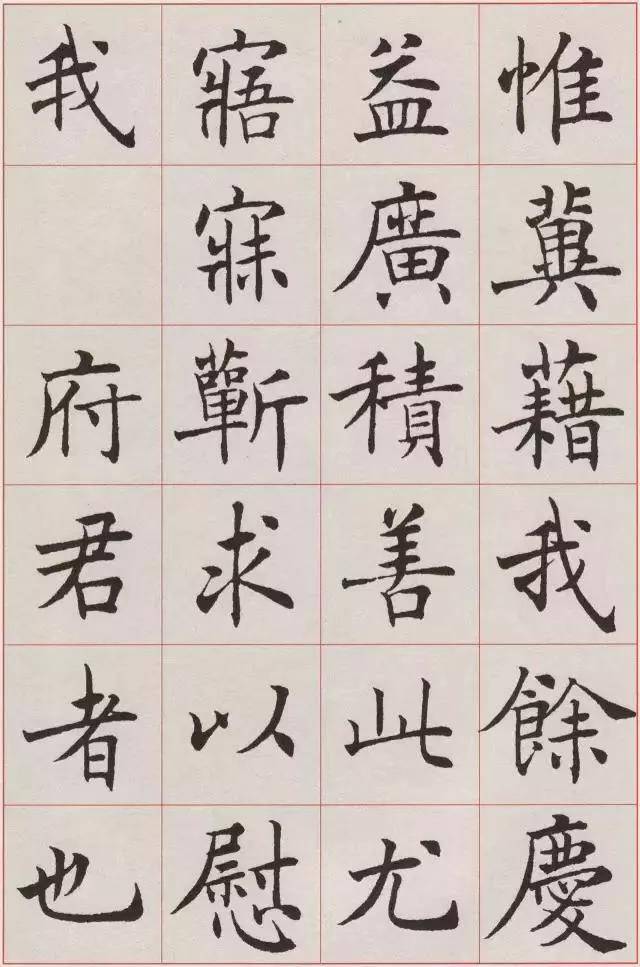 惟冀藉我餘慶
益廣積善此尤
寤寐蘄求以慰
我府君者也